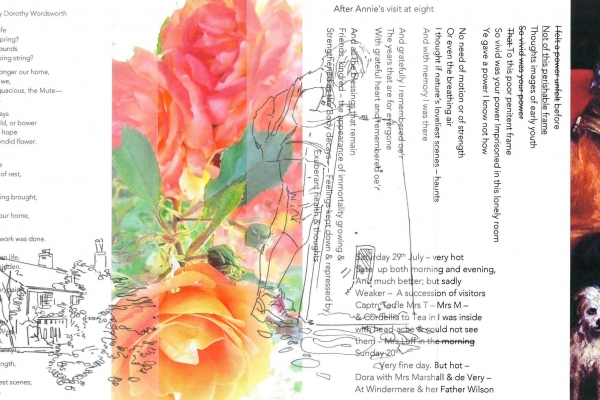 y Dorothy Wordsworth
ife
pring?
ounds
ning string?
onger our home,
we,
quacious, the Mute—
ays
ld, or bower
hope
endid flower.
e
of rest,
ning brought,
our home,
work was done.
en life,
hidden,
ngth,
liest scenes;
After Annie's visit at eight
I felt a power unfelt before
Not of this perishable frame
Thoughts images of early youth
So vivid was your power
That To this poor penitent frame
So vivid was your power Imprisoned in this lonely room
Ye gave a power I know not how
No need of motion or of strength
Or even the breathing air
I thought if nature's loveliest scenes – haunts
And with memory I was there
And gratefully I remembered oe'r
The years that are for everyone
With grateful heart and remembered oe'r
And all the blessings that remain
Friends, kindred – the appearance of immortality growing &
Strengthening as the Body decays – Feelings kept down & repressed by
Exuberant health & thoughts
Saturday 29th July – very hot
Sate up both morning and evening,
And much better; but sadly
Weaker – A succession of visitors
Captn Todle Mrs T – Mrs M –
& Cordelia to Tea in I was inside
with head-ache & could not see
them – Mrs Luff in the morning
Sunday 20th
Very fine day. But hot –
Dora with Mrs Marshall & de Very –
At Windermere & her Father Wilson